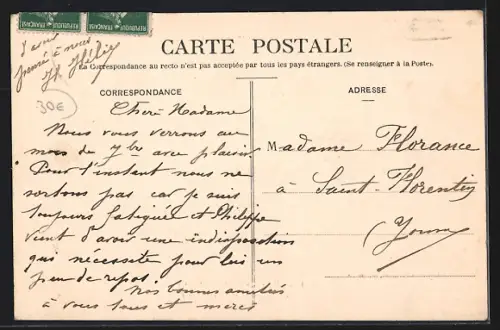 REPUBLIQUE FRANÇAISE
REPUBLIQUE FRANÇAISE
CARTE POSTALE
La Correspondance au recto n'est pas acceptée par tous les pays étrangers. (Se renseigner à la Poste).
CORRESPONDANCE
ADRESSE
d'avoir
pensé à nous
30€
Chère Madame
Nous vous verrons au
mois de 7bre avec plaisir
Pour l'instant nous ne
sortons pas car je suis
toujours fatiguée et Philippe
vient d'avoir une indisposition
qui nécessite pour lui un
peu de repos.
Nos bonnes amitiés
à vous tous et merci
Madame Florance
à Saint-Florentin
(Yonne)